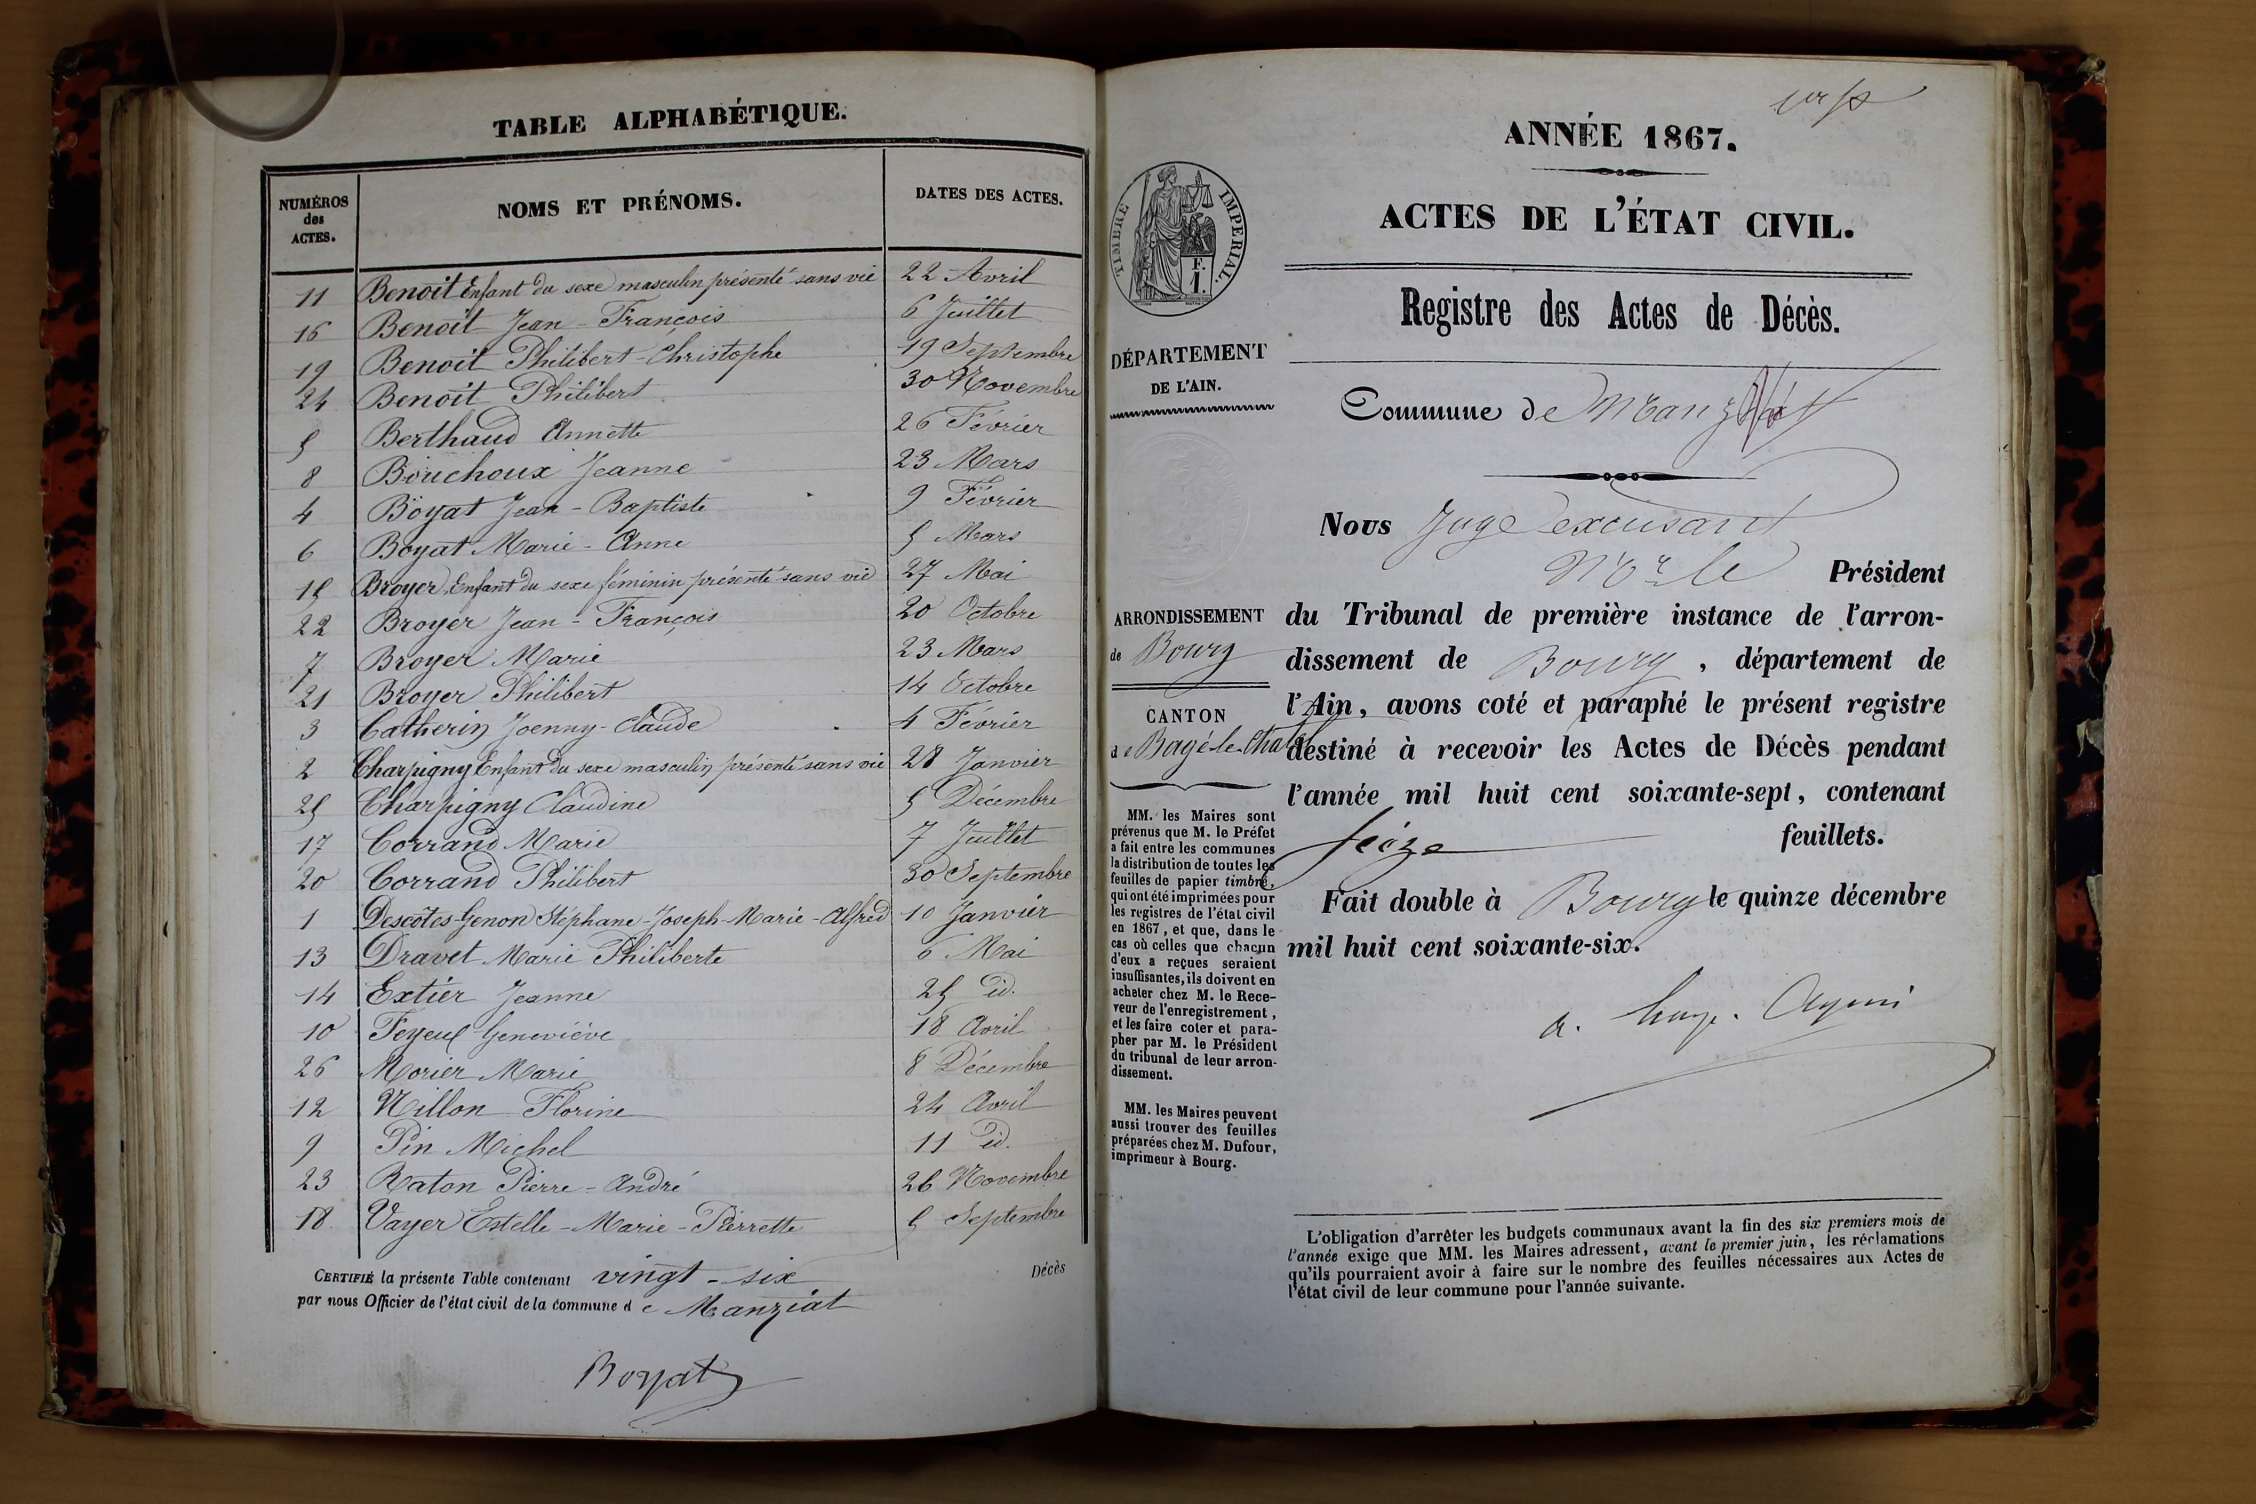 TABLE ALPHABÉTIQUE.
NUMÉROS des ACTES. NOMS ET PRÉNOMS. DATES DES ACTES.
11 Benoit Enfant du sexe masculin présenté sans vie 22 Avril
16 Benoit Jean-François 6 Juillet
19 Benoit Philibert-Christophe 19 Septembre
24 Benoit Philibert 30 Novembre
5 Berthaud Annette 26 Février
8 Bouchoux Jeanne 23 Mars
4 Boyat Jean-Baptiste 9 Février
6 Boyat Marie-Anne 5 Mars
15 Broyer Enfant du sexe féminin présenté sans vie 27 Mai
22 Broyer Jean-François 20 Octobre
7 Broyer Marie 23 Mars
21 Broyer Philibert 14 Octobre
3 Catherin Joenny-Claude 4 Février
2 Charpigny Enfant du sexe masculin présenté sans vie 28 Janvier
25 Charpigny Claudine 5 Décembre
17 Corrand Marie 7 Juillet
20 Corrand Philibert 30 Septembre
1 Descôtes-Genon Stéphane-Joseph-Marie-Alfred 10 Janvier
13 Dravet Marie Philiberte 6 Mai
14 Extier Jeanne 25 id.
10 Feyeul Geneviève 18 Avril
26 Morier Marie 8 Décembre
12 Nillon Florine 24 Avril
9 Pin Michel 11 id.
23 Raton Pierre-André 26 Novembre
18 Vayer Estelle-Marie-Pierrette 5 Septembre
CERTIFIÉ la présente Table contenant vingt-six Décès
par nous Officier de l'état civil de la commune de Manziat
Boyat
ANNÉE 1867.
ACTES DE L'ÉTAT CIVIL.
Registre des Actes de Décès.
TIMBRE IMPERIAL.
F.
1.
DÉPARTEMENT
DE L'AIN.
Commune de Manziat
Nous Juge
Président
du Tribunal de première instance de l'arron-
dissement de Bourg, département de
l'Ain, avons coté et paraphé le présent registre
destiné à recevoir les Actes de Décès pendant
l'année mil huit cent soixante-sept, contenant
seize feuillets.
Fait double à Bourg le quinze décembre
mil huit cent soixante-six.
ARRONDISSEMENT
de Bourg
CANTON
de Bagé-le-Chatel
MM. les Maires sont
prévenus que M. le Préfet
a fait entre les communes
la distribution de toutes les
feuilles de papier timbré,
qui ont été imprimées pour
les registres de l'état civil
en 1867, et que, dans le
cas où celles que chacun
d'eux a reçues seraient
insuffisantes, ils doivent en
acheter chez M. le Rece-
veur de l'enregistrement,
et les faire coter et para-
pher par M. le Président
du tribunal de leur arron-
dissement.
MM. les Maires peuvent
aussi trouver des feuilles
préparées chez M. Dufour,
imprimeur à Bourg.
L'obligation d'arrêter les budgets communaux avant la fin des six premiers mois de
l'année exige que MM. les Maires adressent, avant le premier juin, les réclamations
qu'ils pourraient avoir à faire sur le nombre des feuilles nécessaires aux Actes de
l'état civil de leur commune pour l'année suivante.